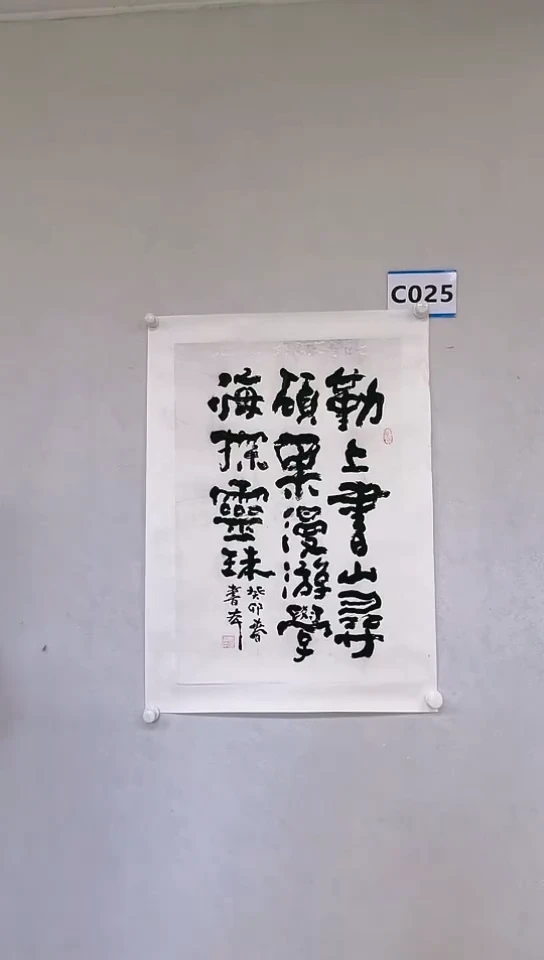 C025
勤上書山尋
碩果漫游學
海探靈珠
癸卯春
書